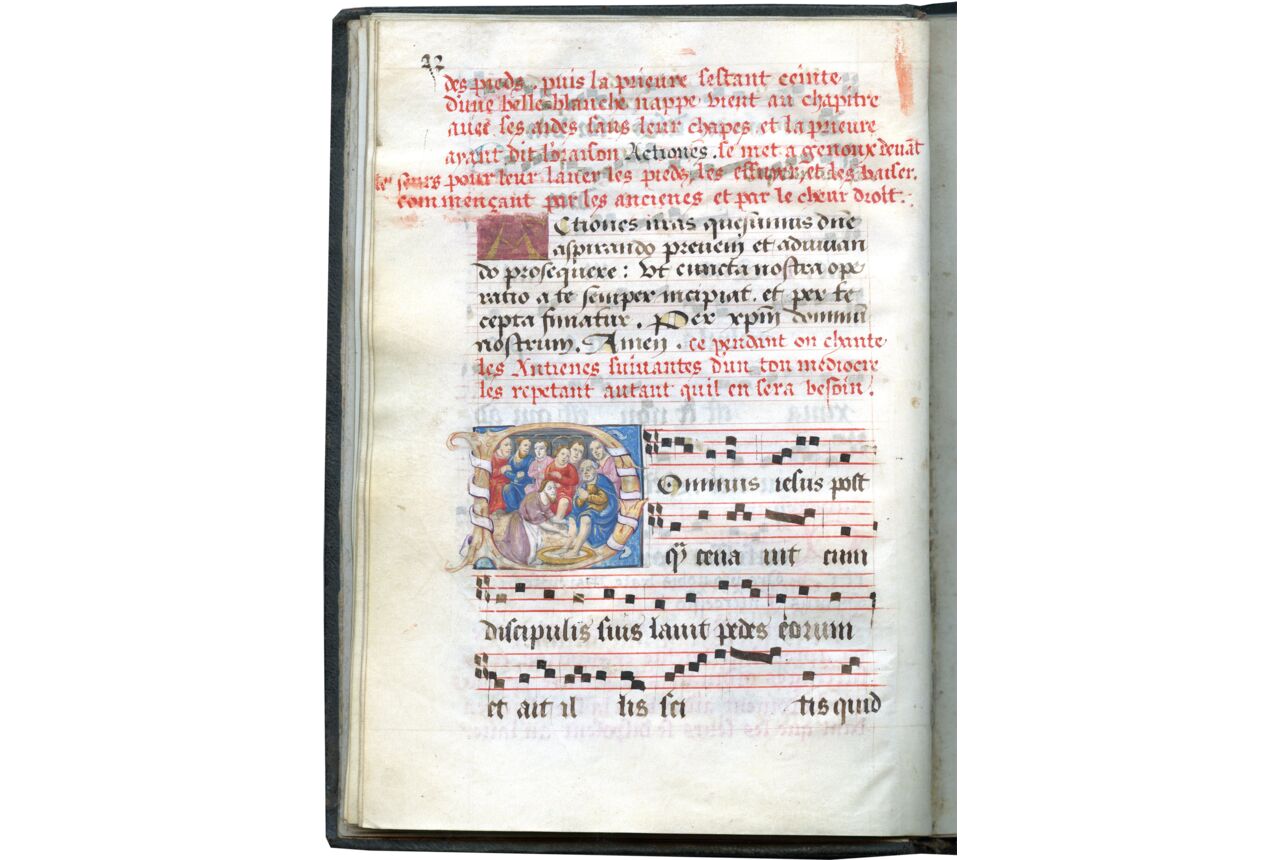 des pieds. puis la prieure sestant ceinte
dune belle blanche nappe vient au chapitre
auec ses aides sans leur chapes et la prieure
ayant dit loraison Actiones. se met a genoux deuāt
les seurs pour leur lauer les pieds, les essuyer, et les baiser,
commençant par les ancienes et par le chœur droit.
Actiones nr̄as quesumus dn̄e
aspirando preueni et adiuuan
do prosequere: Vt cuncta nostra ope
ratio a te semper incipiat. et per te
cepta finiatur. Per xpm̄ dominū
nostrum. Amen. ce pendant on chante
les Antienes suiuantes dun ton mediocre
les repetant autant quil en sera besoin.
Dominus iesus post
q̄ cena uit cum
discipulis suis lauit pedes eorum
et ait il lis sci tis quid